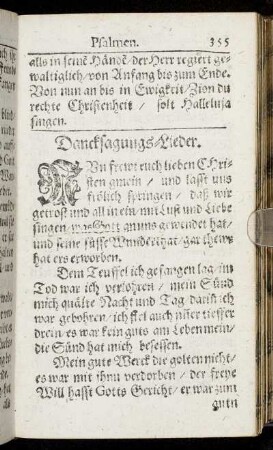 Psalmen. 355
alls in seinē Händē/ der Herr regiert ge-
waltiglich/ von Anfang bis zum Ende.
Von nun an bis in Ewigkeit/ Zion du
rechte Christenheit / solt Halleluja
singen.
Dancksagungs-Lieder.
NUn frewt euch lieben Chri-
sten gmein / und lasst uns
frölich springen / daß wir
getrost und all in ein/ mit Lust und Liebe
singen/ was Gott an uns gewendet hat/
und seine süsse Wunderthat/ gar thewr
hat ers erworben.
Dem Teuffel ich gefangen lag/ im
Tod war ich verlohren / mein Sünd
mich quälte Nacht und Tag/ darin ich
war gebohren/ ich fiel auch im̄er tieffer
drein/ es war kein guts am Leben mein/
die Sünd hat mich besessen.
Mein gute Werck die golten nicht/
es war mit ihnn verdorben / der freye
Will hasst Gotts Gericht/ er war zum
gutn